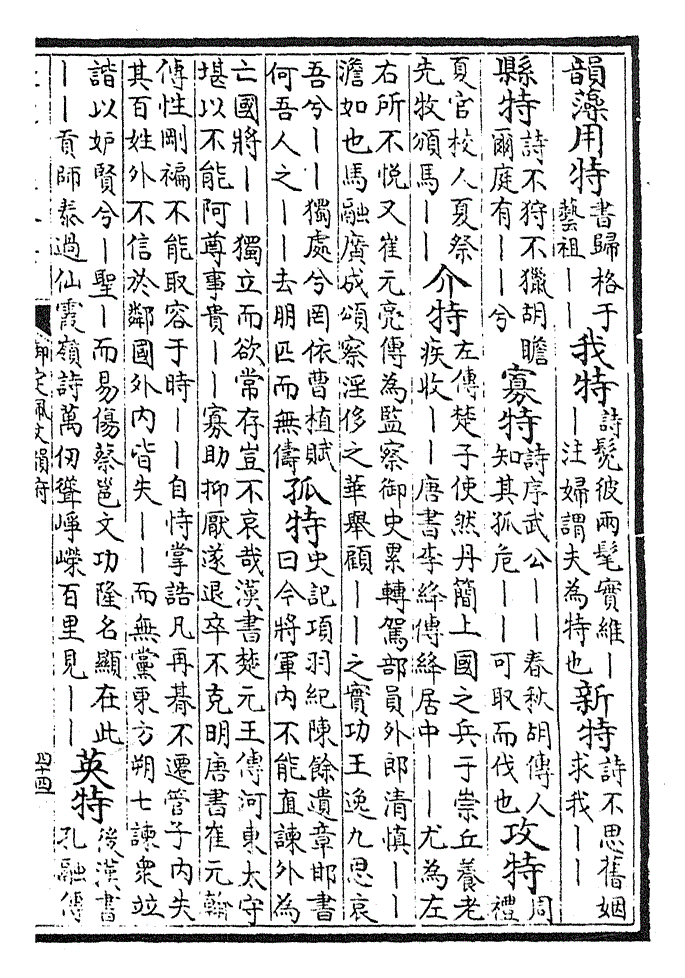 韻藻用特書歸格于藝祖〡〡我特詩髧彼兩髦實維〡〡注婦謂夫為特也新特詩不思舊姻求我〡〡
縣特詩不狩不獵胡瞻爾庭有〡〡兮寡特詩序武公〡〡春秋胡傳人知其孤危〡〡可取而伐也攻特周禮
夏官校人夏祭先牧頒馬〡〡介特左傳楚子使然丹簡上國之兵于崇丘養老疾收〡〡唐書李絳傳絳居中〡〡尤為左
右所不悅又崔元亮傳為監察御史累轉駕部員外郎清慎〡〡澹如也馬融廣成頌察淫侈之華譽顧〡〡之實功王逸九思哀
吾兮〡〡獨處兮罔依曹植賦何吾人之〡〡去朋匹而無儔孤特史記項羽紀陳餘遺章邯書曰今將軍內不能直諫外為
亡國將〡〡獨立而欲常存豈不哀哉漢書楚元王傳河東太守堪以不能阿尊事貴〡〡寡助抑厭遂退卒不克明唐書崔元翰
傳性剛褊不能取容于時〡〡自恃掌誥凡再朞不遷管子內失其百姓外不信於鄰國外內皆失〡〡而無黨東方朔七諫衆竝
諧以妒賢兮〡聖〡而易傷蔡邕文功隆名顯在此〡〡貢師泰過仙霞嶺詩萬仞聳崢嶸百里見〡〡英特後漢書孔融傳
御定佩文韻府
四十四